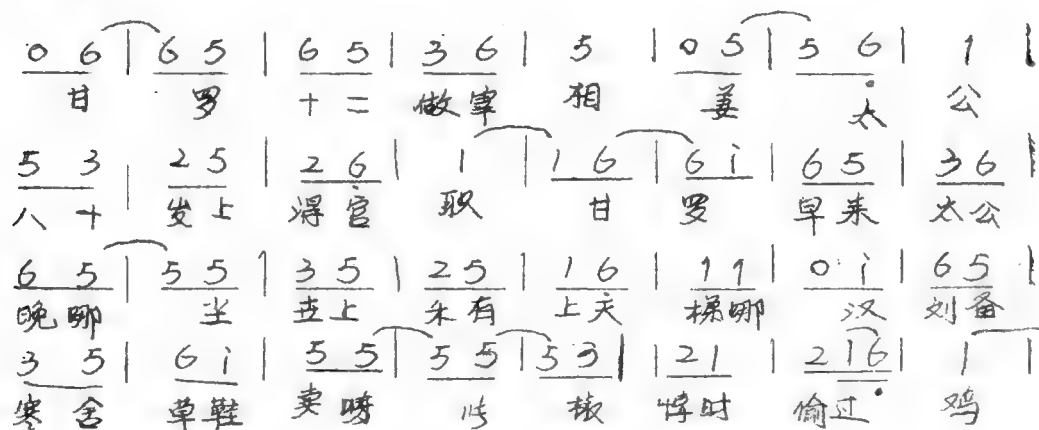 0 6 | 6 5 | 6 5 | 3 6 | 5 | 0 5 | 5 6̣ | 1 |
甘 罗 十二 做宰 相 姜 太 公
5 3 | 2 5 | 2 6̣ | 1 | 1 6 | 6 i | 6 5 | 3 6 |
八十 发上 得官 职 甘 罗 早来 太公
6 5 | 5 5 | 3 5 | 2 5 | 1 6 | 1 1 | 0 i | 6 5 |
晚哪 世上 未有 上天 梯哪 汉 刘备
3 5 | 6 i | 5 5 | 5 5 | 5 3 | 2 1 | 2 1 6̣ | 1 |
寒舍 草鞋 卖 时 偷过 鸡